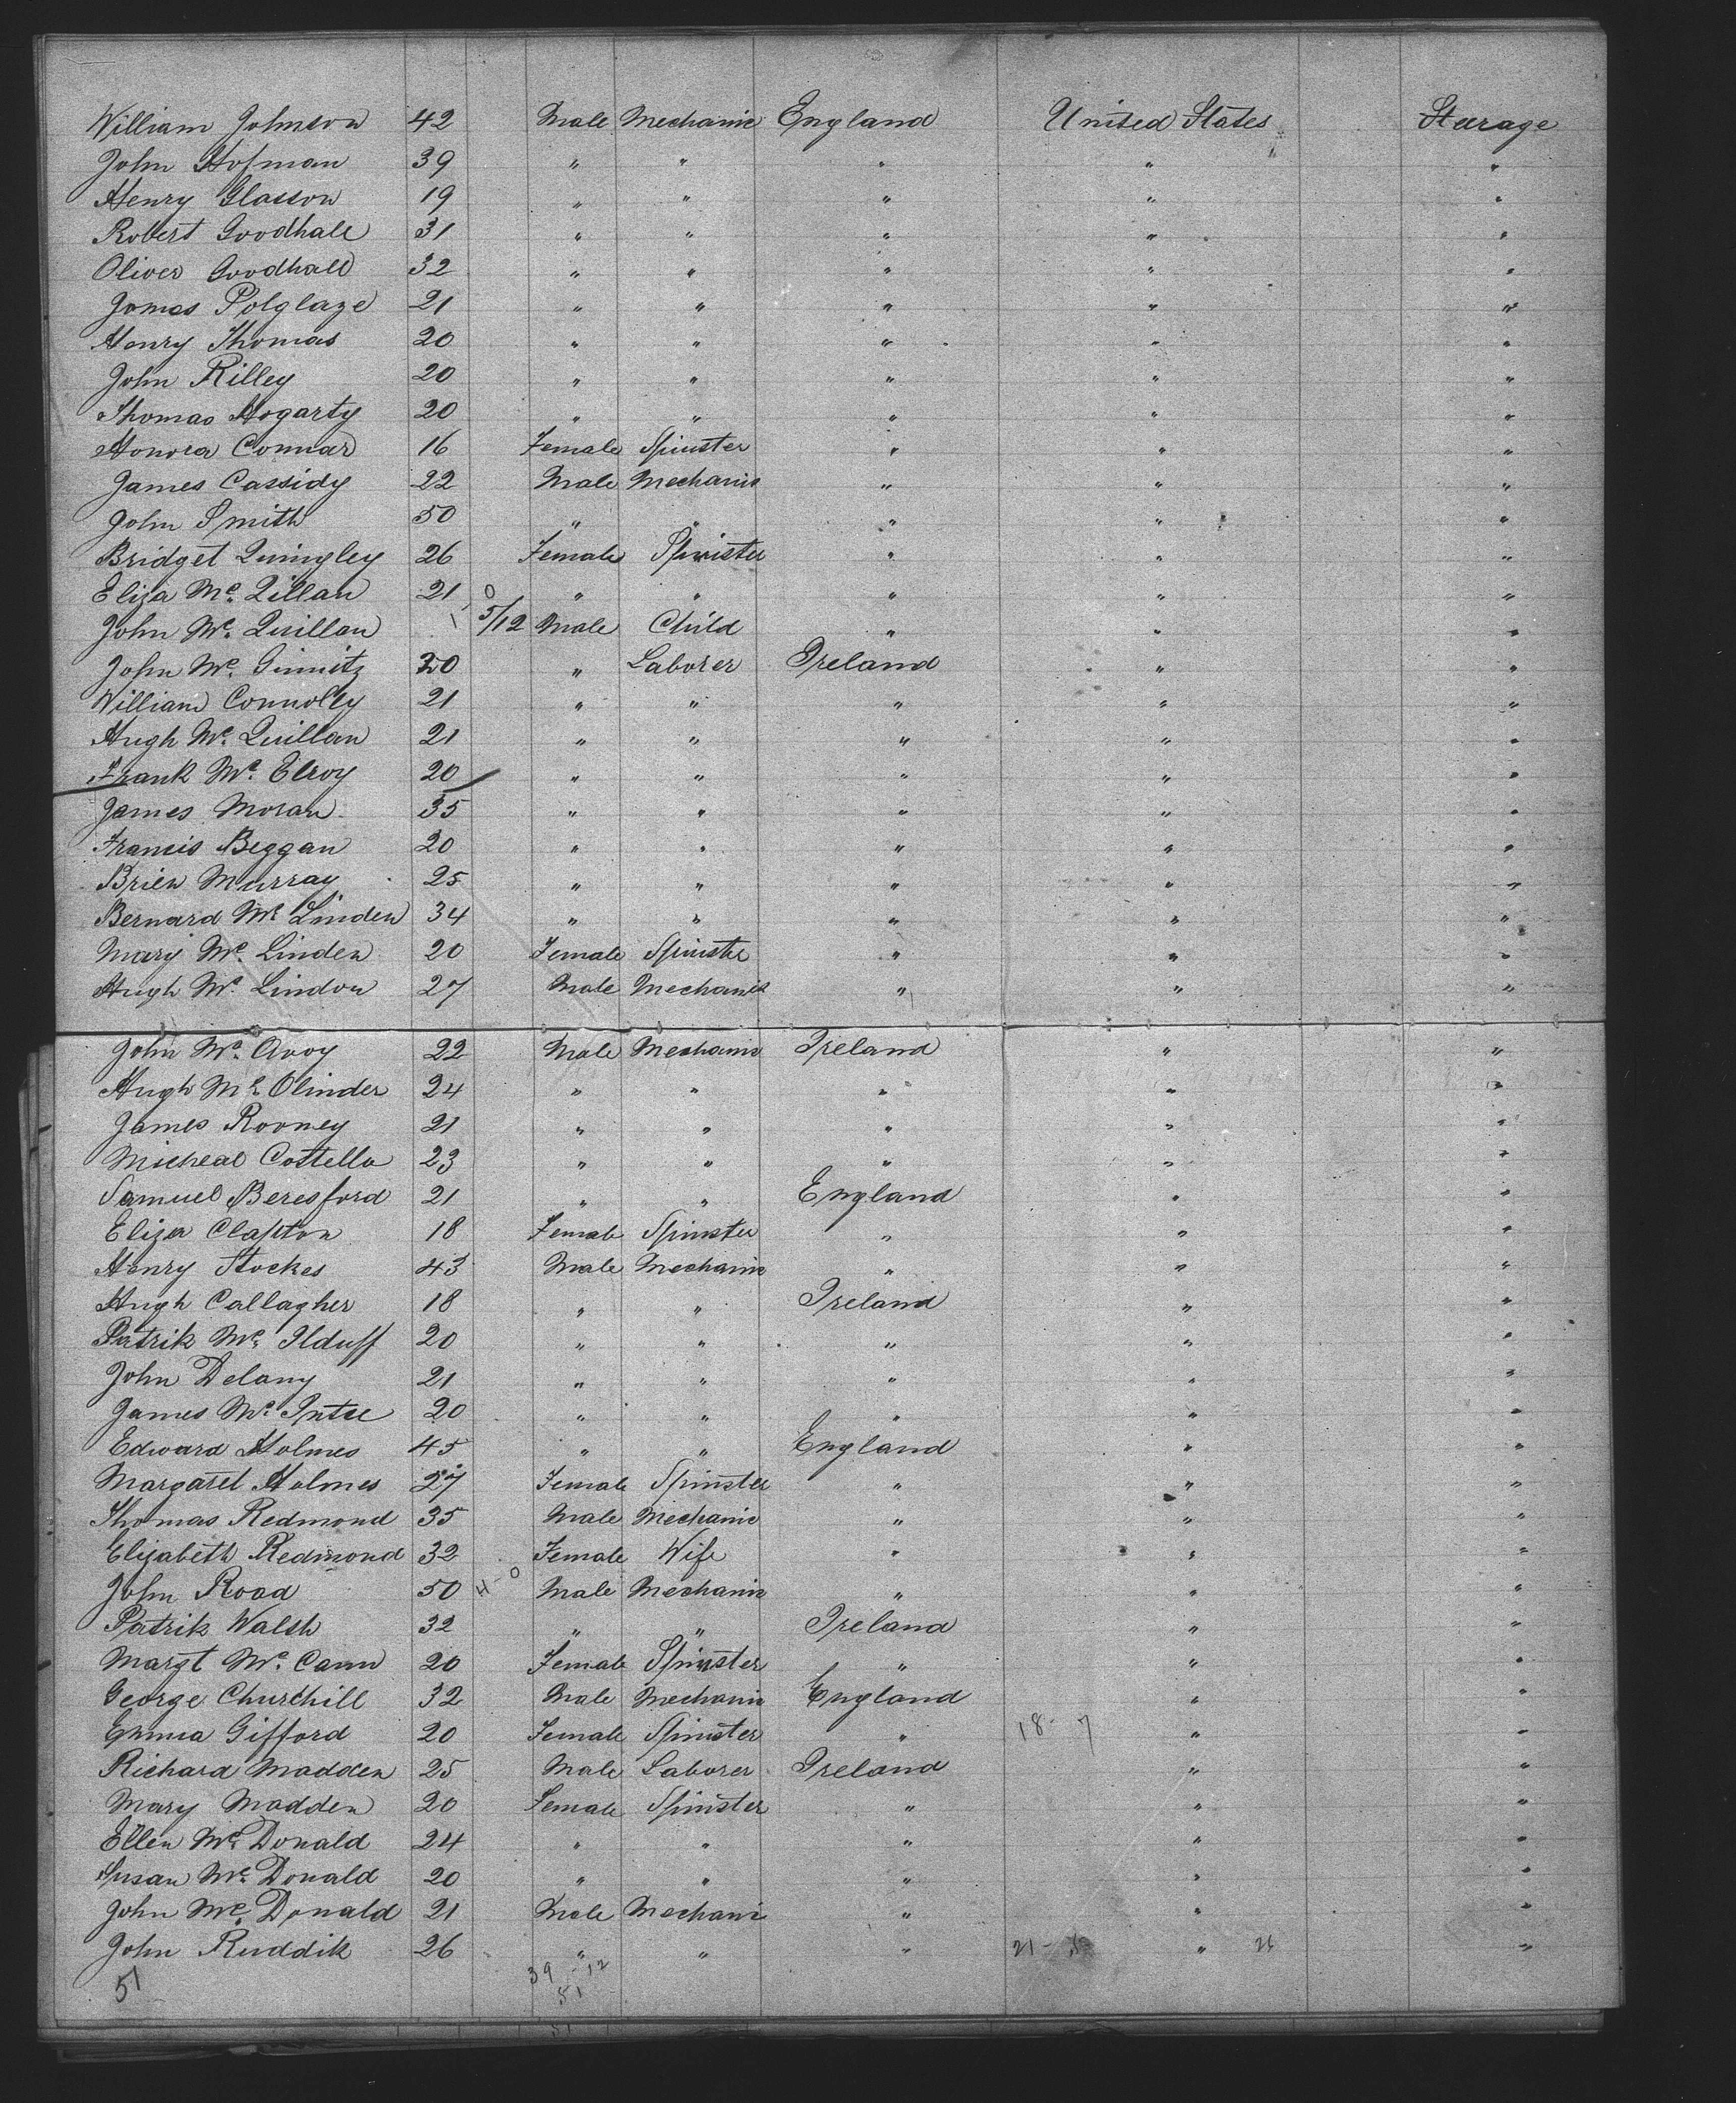 William Johnson 42 Male Mechanic England United States Steerage
John Hofman 39 " " " " "
Henry Glasson 19 " " " " "
Robert Goodhall 31 " " " " "
Oliver Goodhall 32 " " " " "
James Polglaze 21 " " " " "
Henry Thomas 20 " " " " "
John Rilley 20 " " " " "
Thomas Hogarty 20 " " " " "
Honora Connar 16 Female Spinster " " "
James Cassidy 22 Male Mechanic " " "
John Smith 50 " " " " "
Bridget Quingley 26 Female Spinster " " "
Eliza Mc. Qillan 21 " " " " "
John Mc. Quillan 5/12 Male Child " " "
John Mc. Ginnitz 20 " Laborer Ireland " "
William Connolly 21 " " " " "
Hugh Mc. Quillan 21 " " " " "
Frank Mc. Elroy 20 " " " " "
James Moran 35 " " " " "
Francis Beggan 20 " " " " "
Brien Murray 25 " " " " "
Bernard Mc Linden 34 " " " " "
Mary Mc. Linden 20 Female Spinster " " "
Hugh Mc. Lindon 27 Male Mechanik " " "
John Mc. Avoy 22 Male Mechanic Ireland " "
Hugh Mc. Olinder 24 " " " " "
James Rooney 21 " " " " "
Micheal Cottello 23 " " " " "
Samuel Beresford 21 " " England " "
Eliza Clapton 18 Female Spinster " " "
Henry Stockes 43 Male Mechanic " " "
Hugh Callagher 18 " " Ireland " "
Patrik Mc. Ilduff 20 " " " " "
John Delany 21 " " " " "
James Mc. Intee 20 " " " " "
Edward Holmes 45 " " England " "
Margaret Holmes 27 Female Spinster " " "
Thomas Redmond 35 Male Mechanic " " "
Elizabeth Redmond 32 Female Wife " " "
John Road 50 4-0 Male Mechanic " " "
Patrik Walsh 32 " " Ireland " "
Margt Mc. Cann 20 Female Spinster " " "
George Churchill 32 Male Mechanic England " "
Emma Gifford 20 Female Spinster " 18- 7 " "
Richard Madden 25 Male Laborer Ireland " "
Mary Madden 20 Female Spinster " " "
Ellen Mc. Donald 24 " " " " "
Susan Mc. Donald 20 " " " " "
John Mc. Donald 21 Male Mechanic " " "
John Ruddik 26 " " " 21- " 26 "
51 39 -12
51